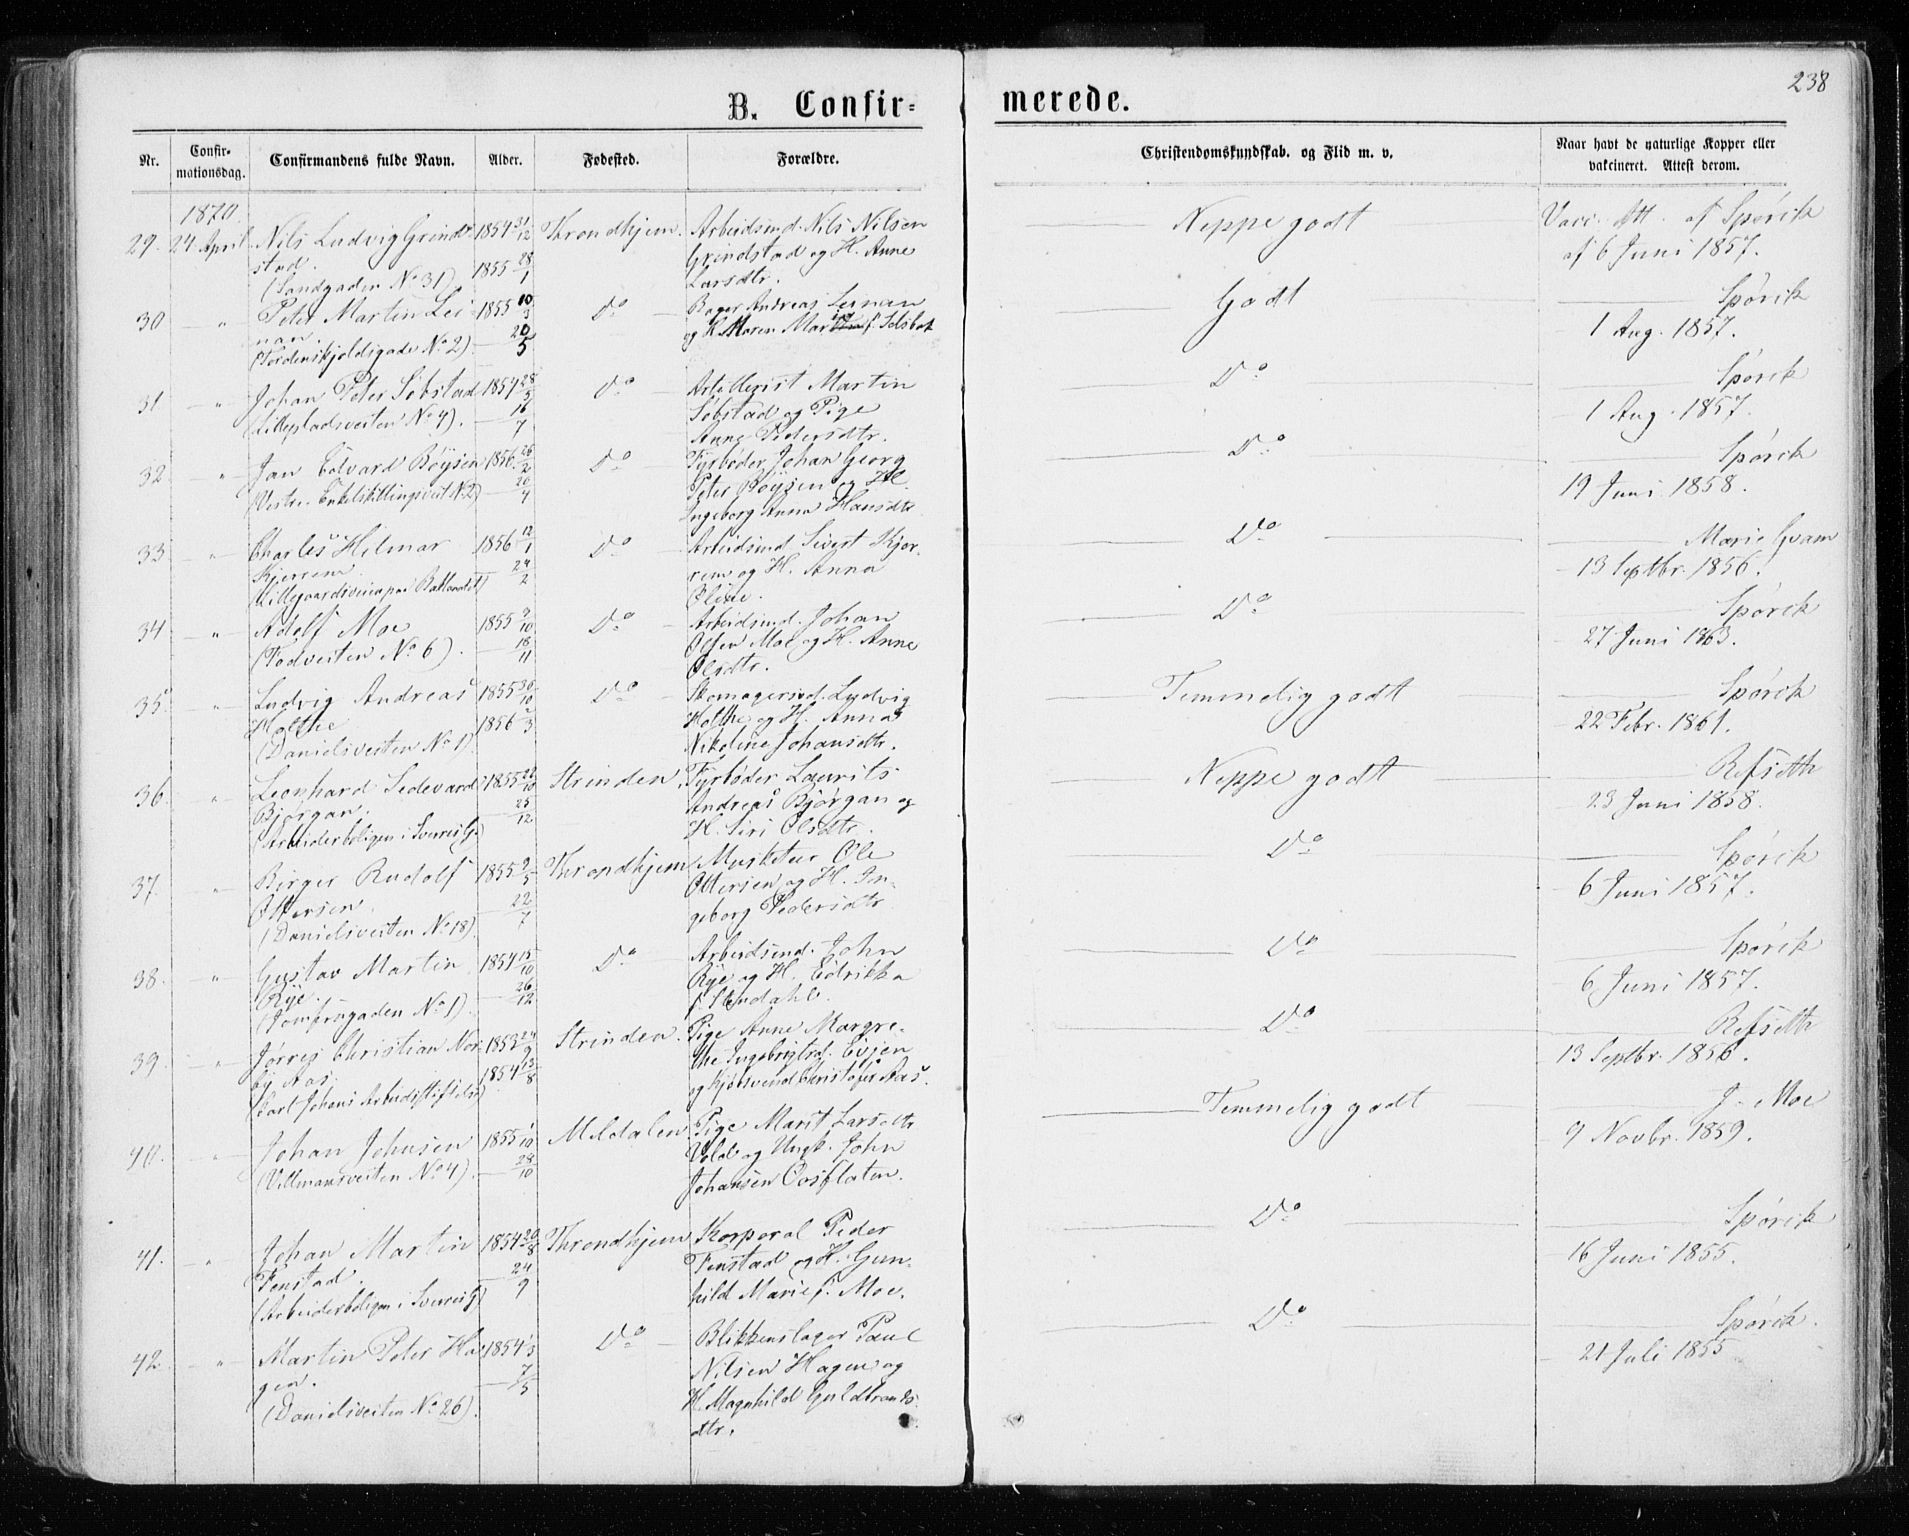 238
B. Confir-
merede.
Nr.
Confir-
mationsdag.
Confirmandens fulde Navn.
Alder.
Fødested.
Forældre.
Christendomskundskab. og Flid m. v.
Naar havt de naturlige Kopper eller
vakcineret. Attest derom.
1870.
29. 24 April Nils Ludvig Grind- 1854 31/12 Throndhjem. Arbeidsmd. Nils Nilsen Neppe godt Vacc. Att. af Spørck
stad. Grindstad og H. Anne af 6 Juni 1857.
(Sandgaden No 31) 1855 28/1 Larsdtr.
30 " Peter Martin Lei- 1855 10/3 Do Bager Andreas Leinan Godt Spørck
nan. og H. Maren f. Selsbak 1 Aug. 1857.
(Tordenskjoldsgade No 2) 20/5
31 " Johan Peter Sobstad 1854 28/5 Do Artillerist Martin Do Spørck
(Lillepladsveiten No 4). 16/7 Sobstad og Pige 1 Aug. 1857.
Anne Pedersdtr.
32 " Jan Edvard Bøysen 1856 26/2 Do Fyrbøder Johan Georg Do Spørck
(Vestre Enkelskillingsveit N. 2) 20/4 Peter Bøysen og H. 19 Juni 1858.
Ingeborg Anna Hansdtr
33 " Charles Hilmar 1856 12/1 Do Arbeidsmd Sivert Kjer- Do Marie Gvam
Kjerrem 24/2 rem og H. Anna 13 Septbr. 1856.
(Lillegaardsveien paa Baklandet) Oline.
34 " Adolf Moe 1855 9/10 Do Arbeidsmd. Johan Do Spørck
(Vodveiten No 6). 18/11 Olsen Moe og H. Anne 27 Juni 1863.
Olsdtr.
35. " Ludvig Andreas 1855 30/10 Do Skomagersvd. Ludvig Temmelig godt Spørck
Holthe 1856 2/3 Holthe og H. Anna 22 Febr. 1861.
(Danielsveiten No 1) Nikoline Johansdtr.
36. " Leonhard Sedevard 1855 20/10 Strinden. Fyrbøder Laurits Neppe godt Refseth
Bjørgan. 25/12 Andreas Bjørgan og 23 Juni 1858.
(Arbeiderboligen i Sverresg.) H. Siri Olsdtr.
37. " Birger Rudolf 1855 2/5 Throndhjem Musketeer Ole Do Spørck
Ottersen. 22/7 Ottersen og H. In- 6 Juni 1857.
(Danielsveiten No 18) geborg Pedersdtr
38. " Gustav Martin 1854 15/10 Do Arbeidsmd. John Do Spørck
Rye. 26/12 Rye og H. Edrikka 6 Juni 1857.
(Jomfrugaden No 1) f. Stendahl.
39. " Jørres Christian Nor- 1853 24/9 Strinden. Pige Anne Margre- Do Refseth
by Aas. 1854 13/8 the Ingebrigtsd. Evjen 13 Septbr. 1856.
(Carl Johans Arbeidsstiftelse) og Kjøbsvend Christofer Aas.
40. " Johan Johnsen 1855 1/10 Meldalen Pige Marit Larsdtr Temmelig godt J. Moe
(Villmansveiten No 4). 28/10 Vold og Ungk. John 9 Novbr. 1859.
Johansen Oosflaten.
41. " Johan Martin 1854 20/8 Throndhjem Korporal Peder Do Spørck
Fenstad. 24/9 Fenstad og H. Gun- 16 Juni 1855.
(Arbeiderboligen i Sverresg) hild Marie f. Moe.
42. " Martin Peter Ha- 1854 1/3 Do Blikkenslager Paul Do Spørck.
gen. 7/5 Nilsen Hagen og 21 Juli 1855
(Danielsveiten No 26). H. Magnhild Guldbrands-
dtr.